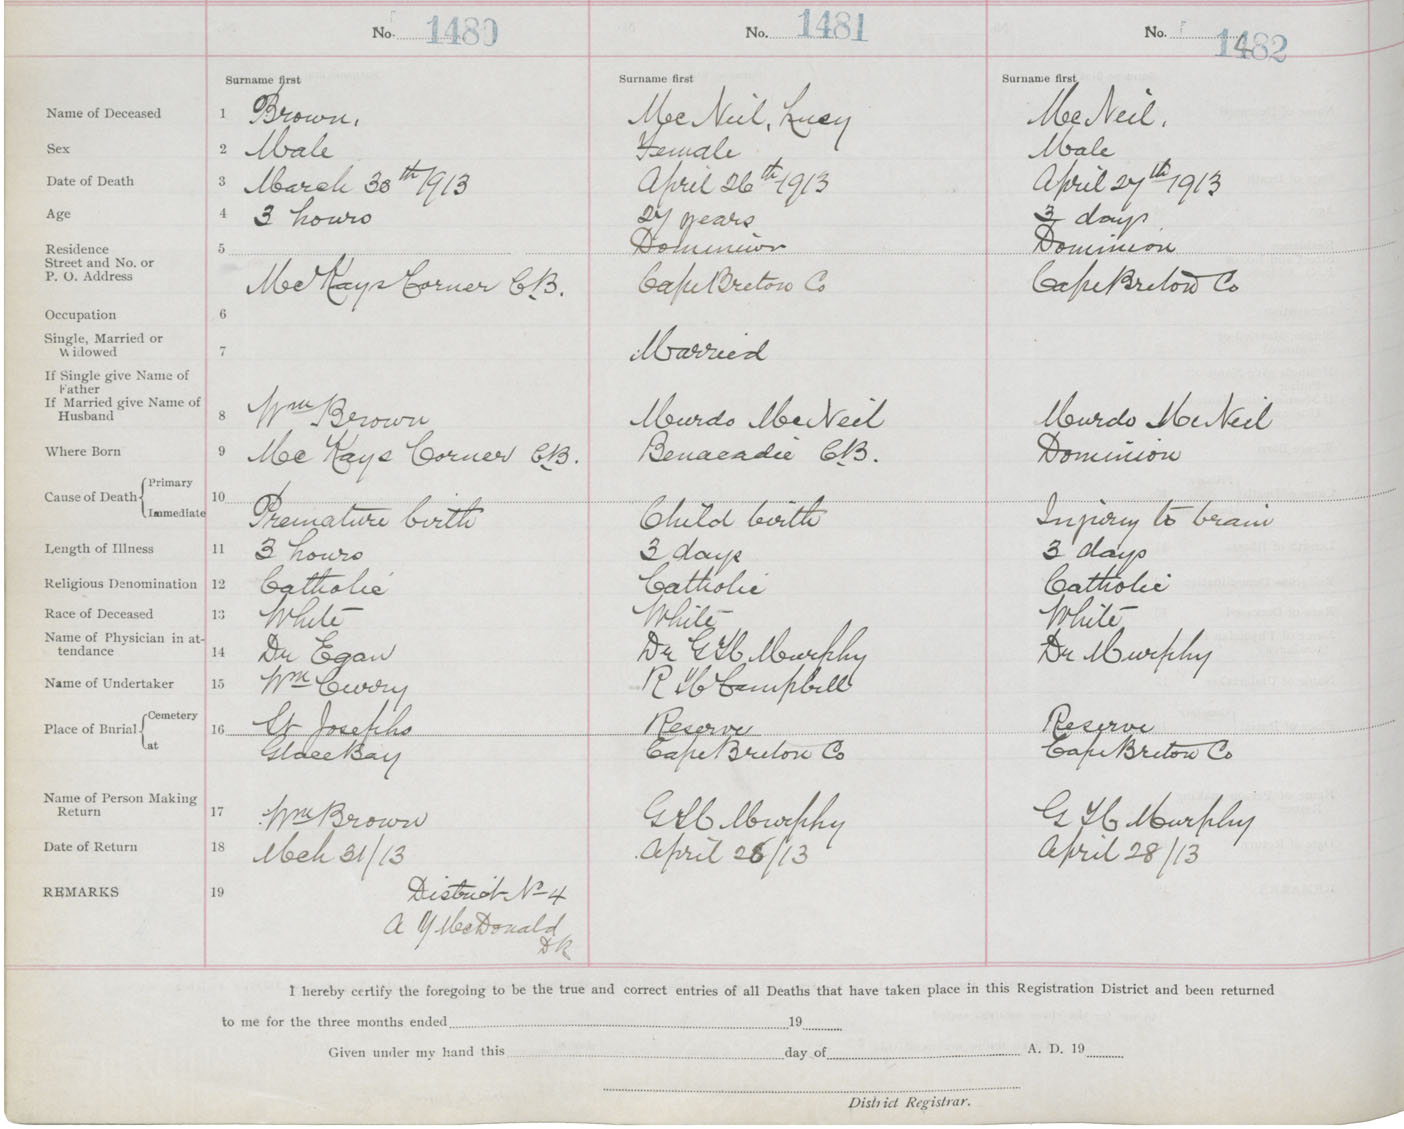 No. 1480 No. 1481 No. 1482
Surname first Surname first Surname first
Name of Deceased 1 Brown, McNeil, Lucy McNeil,
Sex 2 Male Female Male
Date of Death 3 March 30th 1913 April 26th 1913 April 27th 1913
Age 4 3 hours 27 years 3 days
Residence 5 Dominion Dominion
Street and No. or
P. O. Address McKays Corner C.B. Cape Breton Co Cape Breton Co
Occupation 6
Single, Married or
Widowed 7 Married
If Single give Name of
Father
If Married give Name of
Husband 8 Wm Brown Murdo McNeil Murdo McNeil
Where Born 9 McKays Corner C.B. Benacadie C.B. Dominion
Cause of Death { Primary 10
Immediate Premature birth Child birth Injury to brain
Length of Illness 11 3 hours 3 days 3 days
Religious Denomination 12 Catholic Catholic Catholic
Race of Deceased 13 White White White
Name of Physician in at-
tendance 14 Dr Egan Dr G H Murphy Dr Murphy
Name of Undertaker 15 Wm Curry R H Campbell
Place of Burial { Cemetery 16 St Josephs Reserve Reserve
at Glace Bay Cape Breton Co Cape Breton Co
Name of Person Making
Return 17 Wm Brown G H Murphy G H Murphy
Date of Return 18 Mch 31/13 April 28/13 April 28/13
REMARKS 19 District No 4
A Y McDonald
DR
I hereby certify the foregoing to be the true and correct entries of all Deaths that have taken place in this Registration District and been returned
to me for the three months ended 19
Given under my hand this day of A. D. 19
District Registrar.